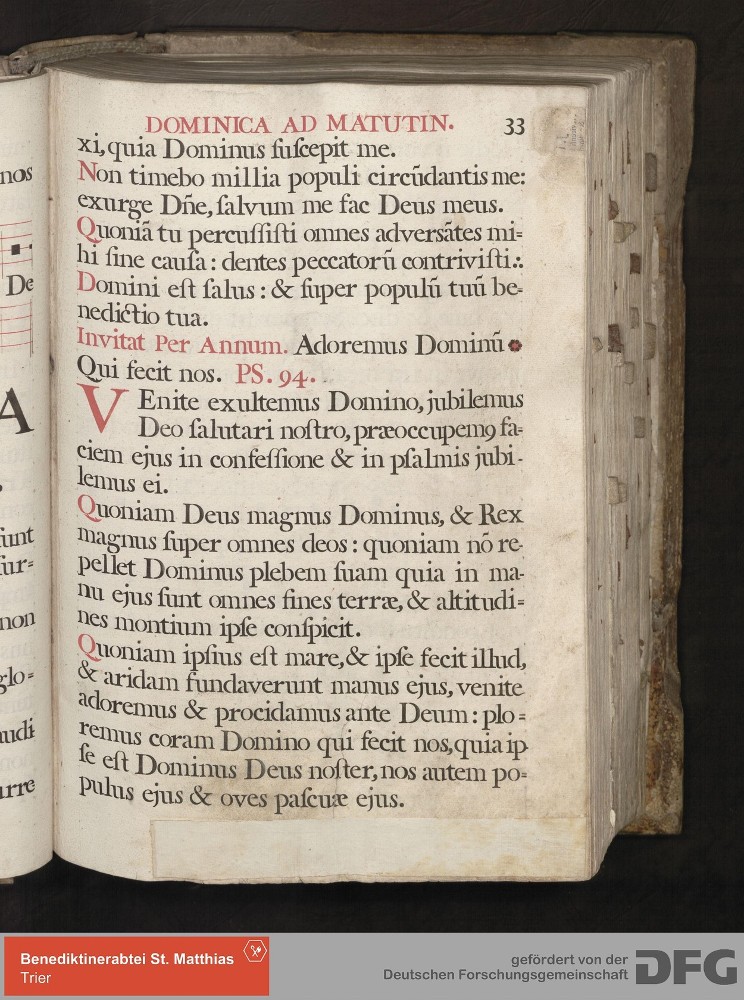 DOMINICA AD MATUTIN. 33
xi, quia Dominus ſuſcepit me.
Non timebo millia populi circũdantis me:
exurge Dñe, ſalvum me fac Deus meus.
Quoniã tu percuſſiſti omnes adversãtes mi=
hi ſine cauſa: dentes peccatorũ contriviſti:.
Domini eſt ſalus: & ſuper populũ tuũ be=
nedictio tua.
Invitat Per Annum. Adoremus Dominũ
Qui fecit nos. PS. 94.
VEnite exultemus Domino, jubilemus
Deo ſalutari noſtro, præoccupemꝯ fa=
ciem ejus in confeſſione & in pſalmis jubi-
lemus ei.
Quoniam Deus magnus Dominus, & Rex
magnus ſuper omnes deos: quoniam nõ re-
pellet Dominus plebem ſuam quia in ma-
nu ejus ſunt omnes fines terræ, & altitudi=
nes montium ipſe conſpicit.
Quoniam ipſius eſt mare, & ipſe fecit illud,
& aridam fundaverunt manus ejus, venite
adoremus & procidamus ante Deum: plo=
remus coram Domino qui fecit nos, quia ip-
ſe eſt Dominus Deus noſter, nos autem po=
pulus ejus & oves paſcuæ ejus.
nos
De
A
ſunt
ſur=
non
glo=
audi
urre
Benediktinerabtei St. Matthias
Trier
gefördert von der
Deutschen Forschungsgemeinschaft
DFG